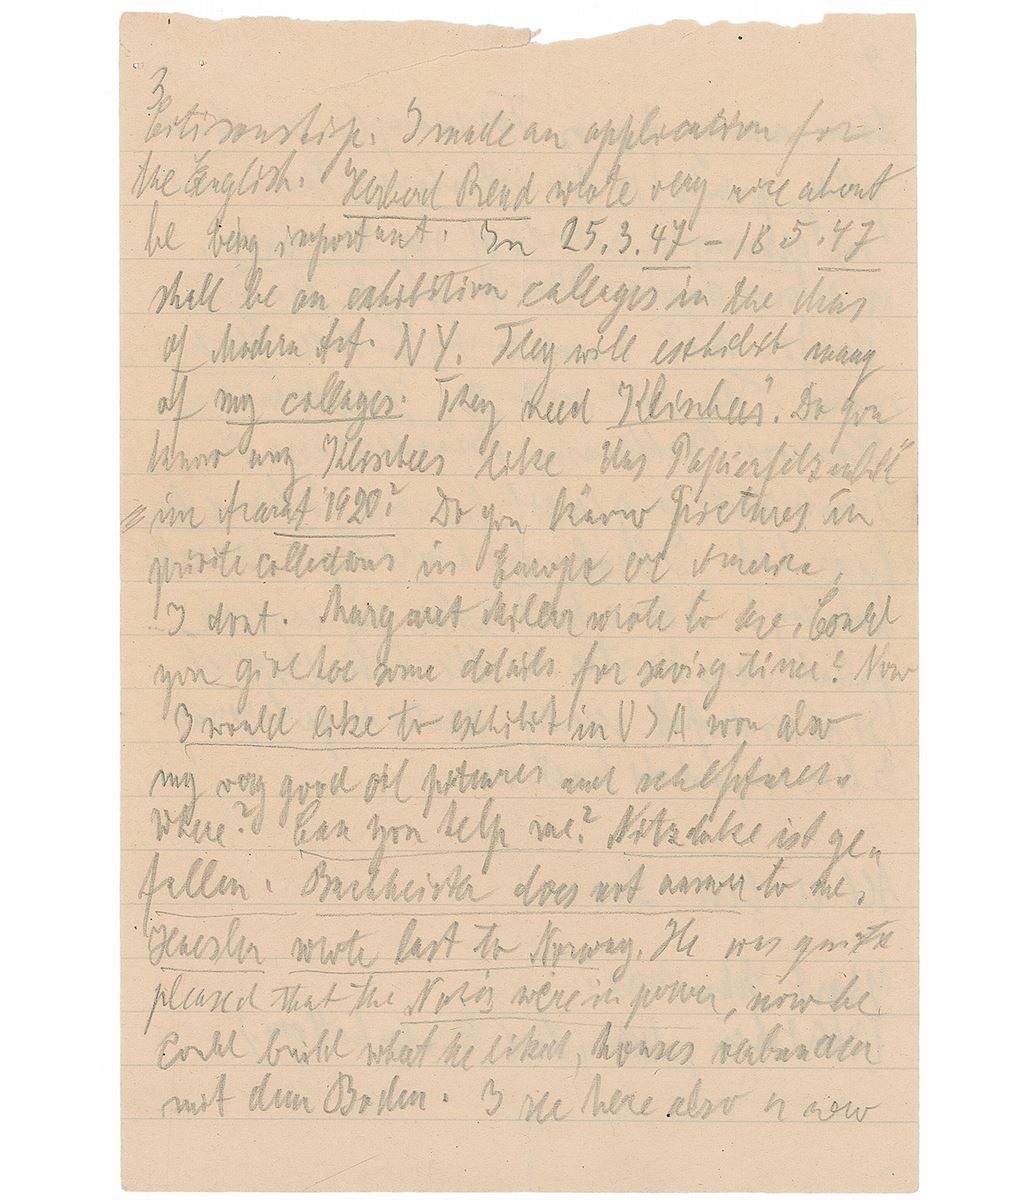 3
Citizenship. I made an application for
the English. Herbert Read wrote very nice about
be being important. In 25.3.47 – 18 5.47
shall be an exhibition collages in the Mus
of Modern Art. NY. They will exhibit many
of my collages. They need "Klischees". Do you
know any Klischees like Das
im Ararat 1920? Do you know pictures in
private collections in Europe or America,
I dont. Margaret Miller wrote to me. Could
you give me some details for saving time? Now
I would like to exhibit in USA now also
my very good oil pictures and sculptures.
Where? Can you help me? Nitzschke ist ge
fallen. Buchheister does not answer to me.
Haesler wrote last to Norway. He was quite
pleased that the Nazis were in power, now he
could build what he liked, houses verbunden
mit dem Boden. I see here also a new